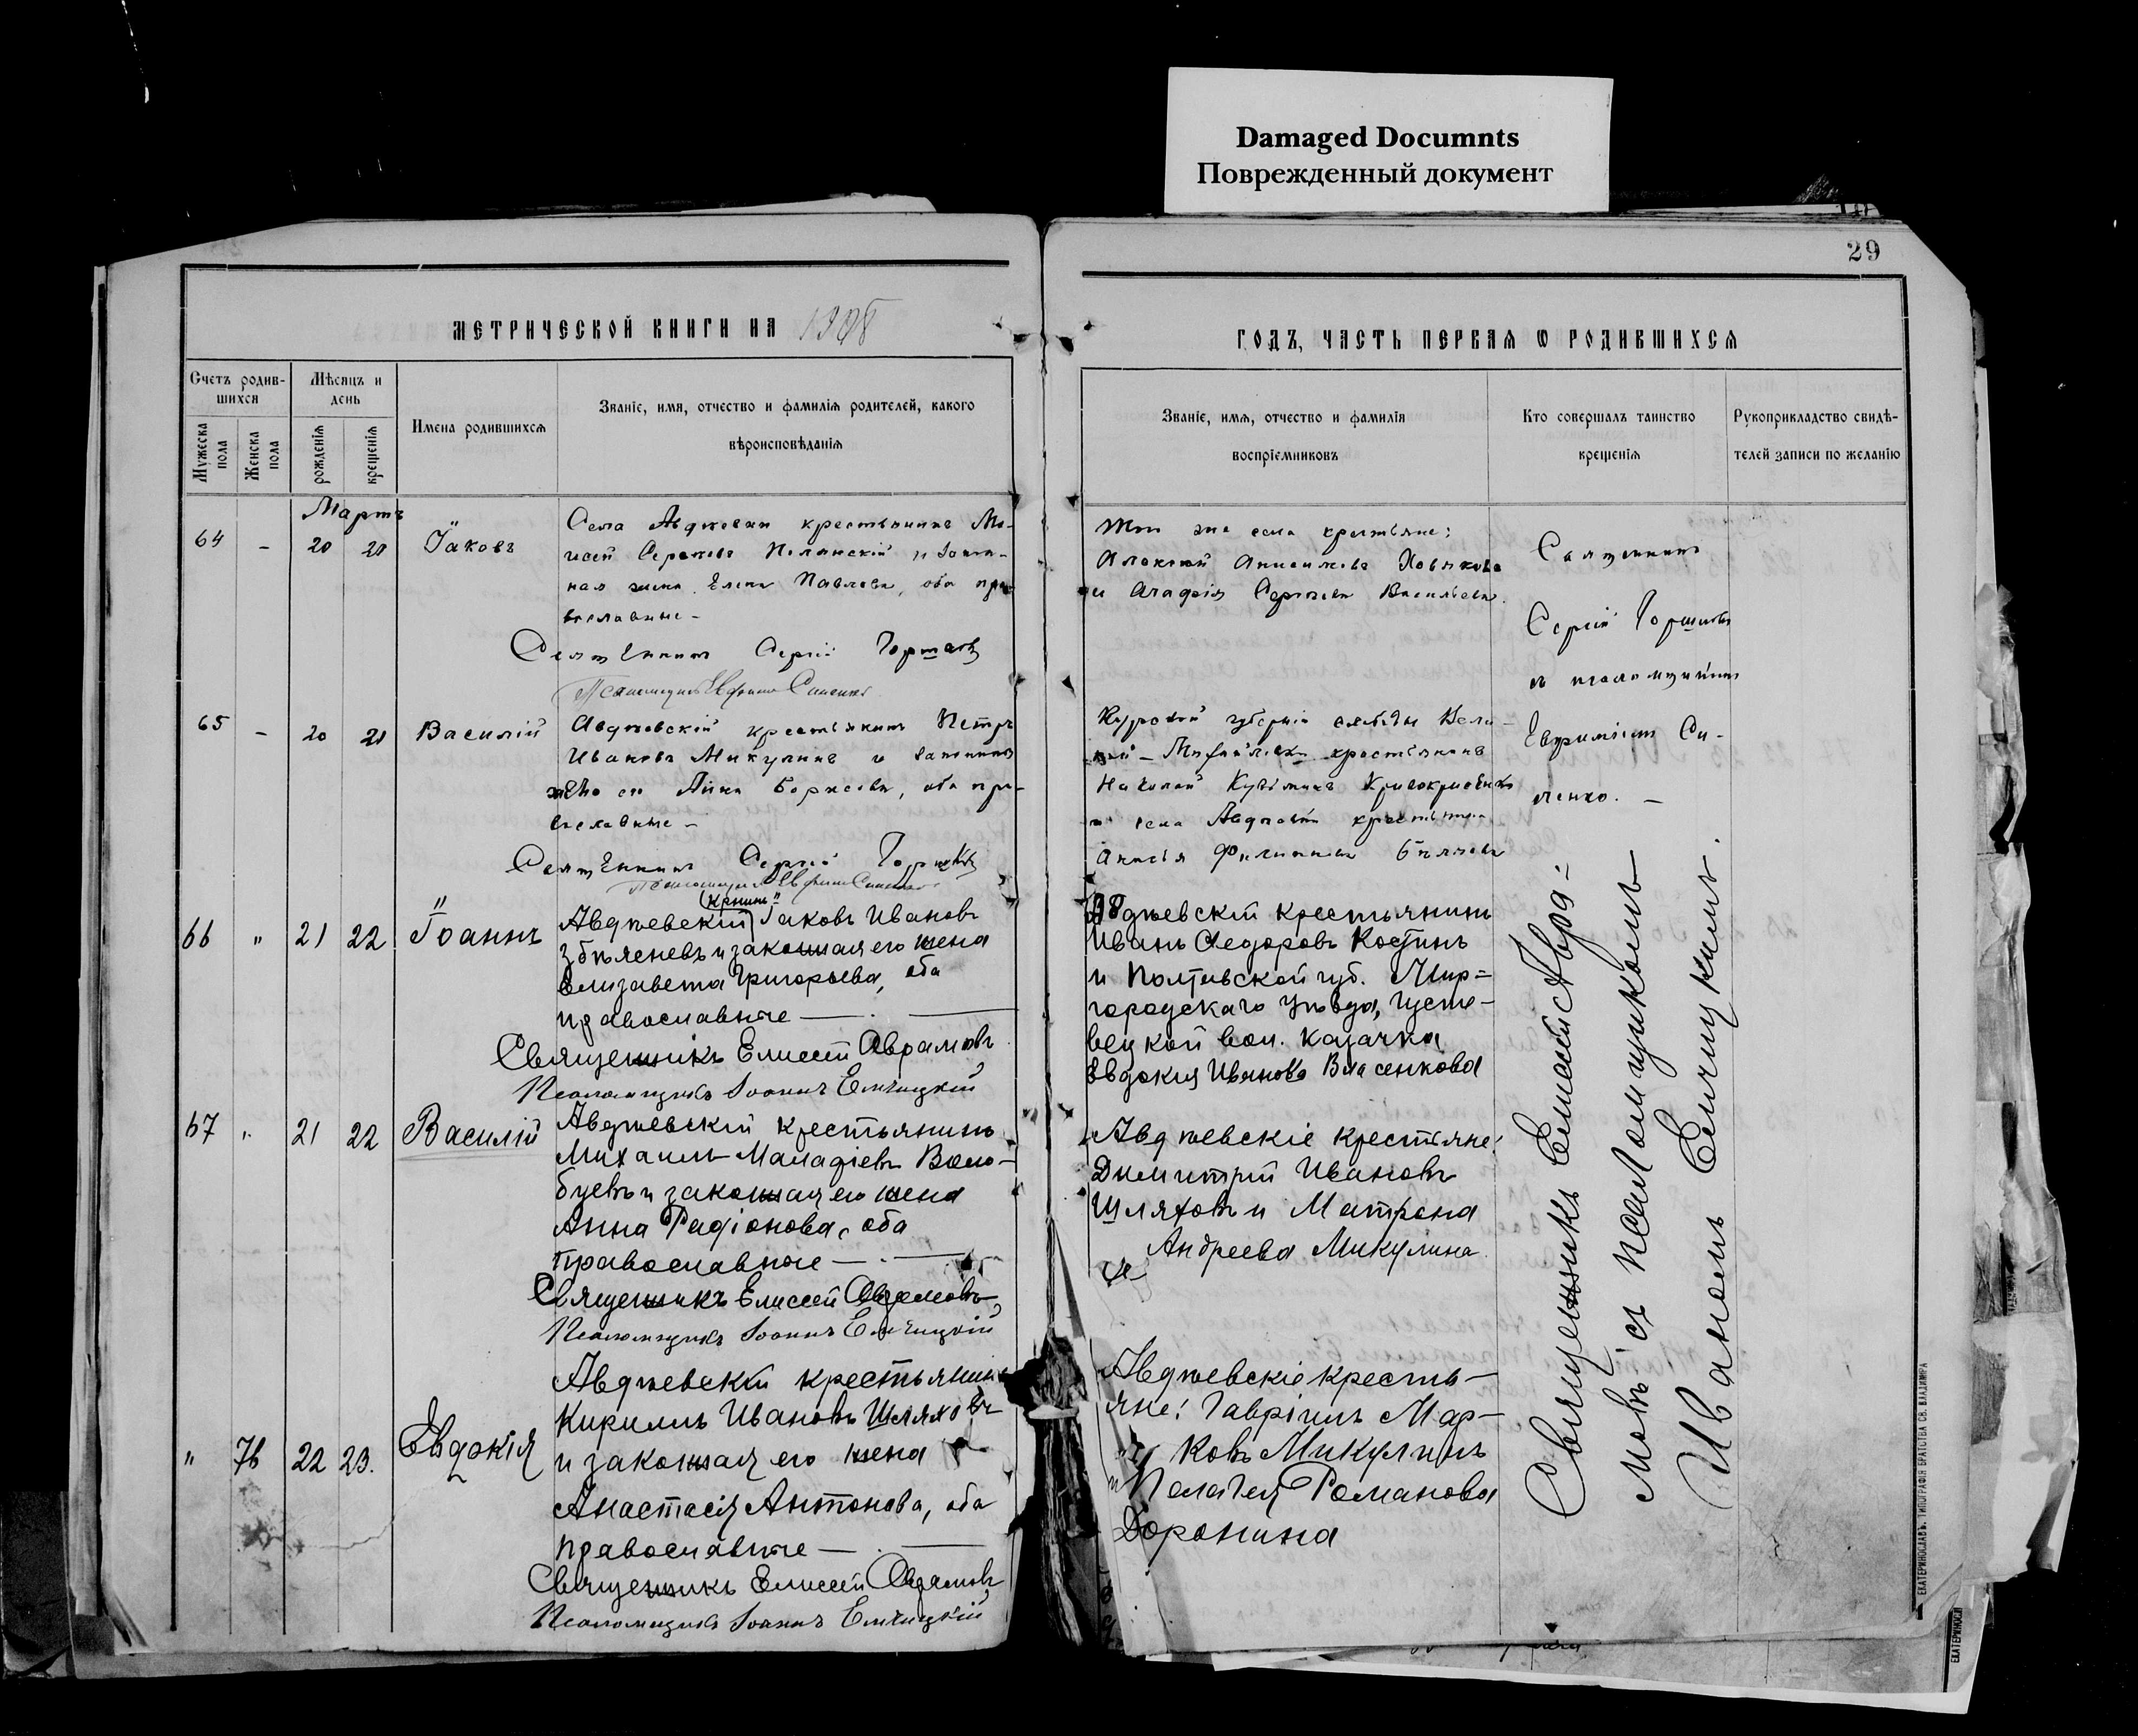 Damaged Documnts
Поврежденный документ
29
МЕТРИЧЕСКОЙ КНИГИ НА 1908
ГОДЪ, ЧАСТЬ ПЕРВАЯ Ѡ РОДИВШИХСЯ
Счетъ родив-
шихся
Мужеска пола
Женска пола
Мѣсяцъ и
день
рожденія
крещенія
Имена родившихся
Званіе, имя, отчество и фамилія родителей, какого
вѣроисповѣданія
Званіе, имя, отчество и фамилія
воспріемниковъ
Кто совершалъ таинство
крещенія
Рукоприкладство свидѣ-
телей записи по желанію
Мартъ
64 - 20 20 Іаковъ
Села Авдѣевки крестьянинъ Мо-
исей и закон-
ная жена Елена Павлова, оба пра-
вославные -
Священникъ Сергій
Той же села крестьяне:
Алексѣй
и Агафія Сергѣева Васильева.
65 - 20 21 Василій
Авдѣевскій крестьянинъ Петръ
Ивановъ Микулинъ и законная
жена его Анна Борисова, оба пра-
вославные -
Священникъ Сергій
Курской губерніи слободы Вели-
кой-Михайловки крестьянинъ
Николай
и села Авдѣевки крестьянка
Анисья Филиппова
Священникъ
Сергій
съ псаломщикомъ
Евфиміемъ Си-
ненко. -
66 " 21 22 Іоаннъ
Авдѣевскій (крнинъ) Іаковъ Ивановъ
и законная его жена
Елизавета Григорьева, оба
православные -
Священникъ Елисей Аврамовъ
Псаломщикъ Іоаннъ
Авдѣевскій крестьянинъ
Иванъ Ѳедоровъ Костинъ
и Полтавской губ. Мир=
городскаго уѣзда, Усти-
вецкой вол. казачка
Евдокия Иванова Власенкова
67 " 21 22 Василій
Авдѣевскій крестьянинъ
Михаилъ Малафіевъ Воло-
буевъ и законная его жена
Анна Радіонова, оба
православные -
Священникъ Елисей Аврамовъ
Псаломщикъ Іоаннъ
Авдѣевскіе крестьяне:
Димитрій Ивановъ
Шляховъ и Матрона
Андреева Микулина
" 76 22 23. Евдокія
Авдѣевскій крестьянинъ
Кириллъ Ивановъ Шляховъ
и законная его жена
Анастасія Антонова, оба
православные -
Священникъ Елисей Аврамовъ
Псаломщикъ Іоаннъ
Авдѣевскіе кресть-
яне: Гавріилъ Мар-
ковъ Микулинъ
и Пелагея Романова
Доронина
Священникъ Елисей Авра=
мовъ съ псаломщикомъ
Иваномъ
ЕКАТЕРИНОСЛАВЪ. ТИПОГРАФІЯ БРАТСТВА СВ. ВЛАДИМІРА